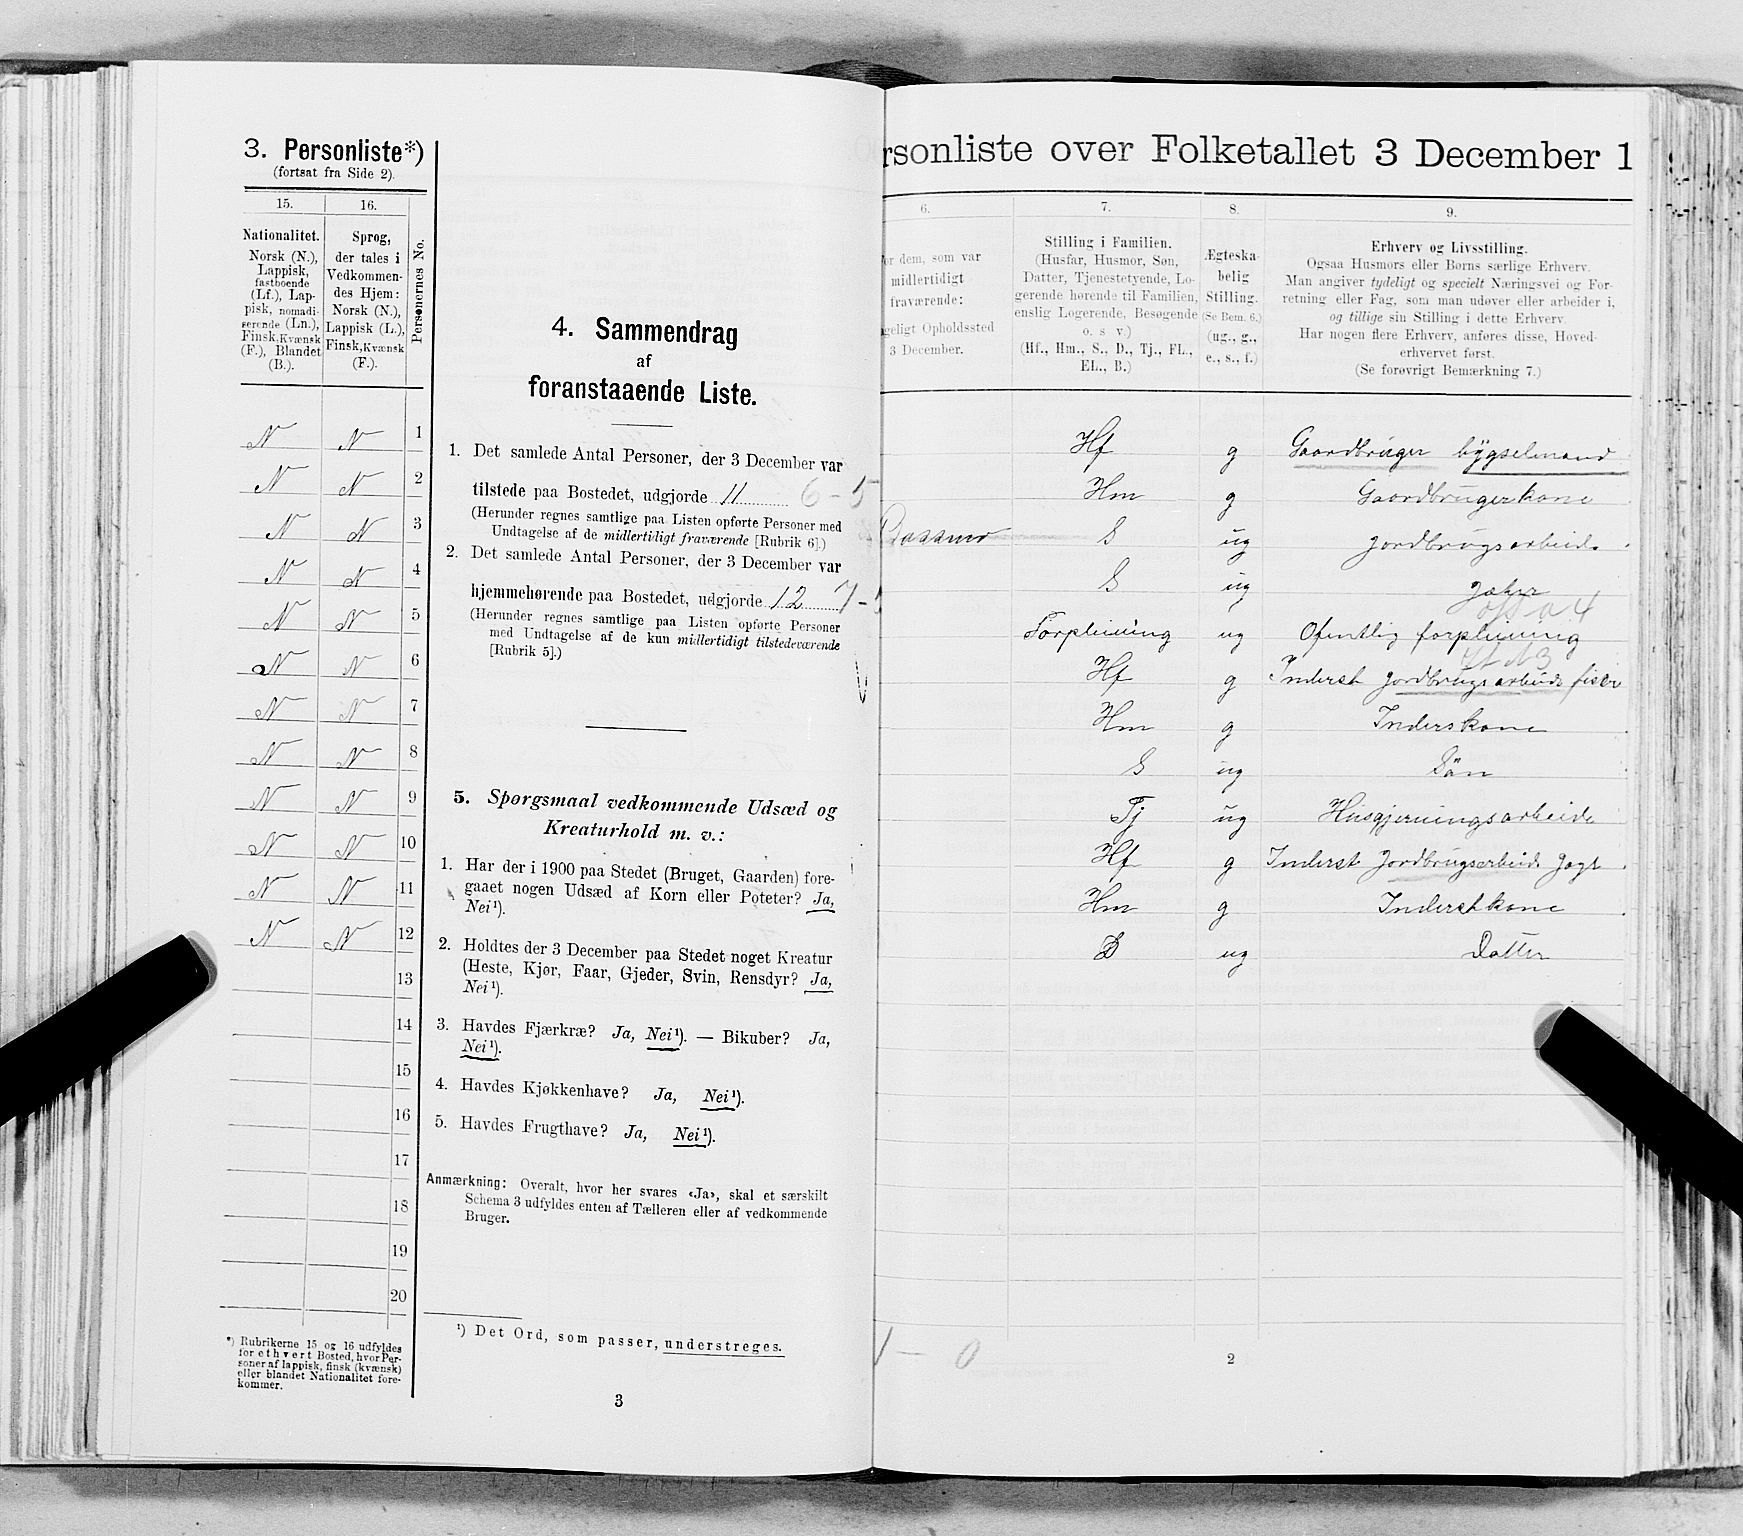 3. Personliste*)
(fortsat fra Side 2).
15. 16.
Personernes No.
Nationalitet.
Norsk (N.),
Lappisk,
fastboende
(Lf.), Lap-
pisk, nomadi-
serende (Ln.),
Finsk, Kvænsk
(F.), Blandet
(B.).
Sprog,
der tales i
Vedkommen-
des Hjem:
Norsk (N.),
Lappisk (L.),
Finsk, Kvænsk
(F.).
N N 1
N N 2
N N 3
N N 4
N N 5
N N 6
N N 7
N N 8
N N 9
N N 10
N N 11
N N 12
13
14
15
16
17
18
19
20
*) Rubrikerne 15 og 16 udfyldes
for ethvert Bosted, hvor Per-
soner af lappisk, finsk (kvænsk)
eller blandet Nationalitet fore-
kommer.
4. Sammendrag
af
foranstaaende Liste.
1. Det samlede Antal Personer, der 3 December var
tilstede paa Bostedet, udgjorde 11 6-5
(Herunder regnes samtlige paa Listen opførte Personer med
Undtagelse af de midlertidigt fraværende [Rubrik 6].)
2. Det samlede Antal Personer, der 3 December var
hjemmehørende paa Bostedet, udgjorde 12 7-
(Herunder regnes samtlige paa Listen opførte Personer
med Undtagelse af de kun midlertidigt tilstedeværende
[Rubrik 5].)
5. Spørgsmaal vedkommende Udsæd og
Kreaturhold m. v.:
1. Har der i 1900 paa Stedet (Bruget, Gaarden) fore-
gaaet nogen Udsæd af Korn eller Poteter? Ja,
Nei¹).
2. Holdtes der 3 December paa Stedet noget Kreatur
(Heste, Kjør, Faar, Gjeder, Svin, Rensdyr? Ja,
Nei¹).
3. Havdes Fjærkræ? Ja, Nei¹). — Bikuber? Ja,
Nei¹).
4. Havdes Kjøkkenhave? Ja, Nei¹).
5. Havdes Frugthave? Ja, Nei¹).
Anmærkning: Overalt, hvor her svares «Ja», skal et særskilt
Schema 3 udfyldes enten af Tælleren eller af vedkommende
Bruger.
¹) Det Ord, som passer, understreges.
3
rsonliste over Folketallet 3 December 1
6. 7. 8. 9.
or dem, som var
midlertidigt
fraværende:
geligt Opholdssted
3 December.
Stilling i Familien.
(Husfar, Husmor, Søn,
Datter, Tjenestetyende, Lo-
gerende hørende til Familien,
enslig Logerende, Besøgende
o. s v.)
(Hf., Hm., S., D., Tj., FL.,
EL., B.)
Ægteska-
belig
Stilling.
(Se Bem. 6.)
(ug., g.,
e., s., f.)
Erhverv og Livsstilling.
Ogsaa Husmors eller Børns særlige Erhverv.
Man angiver tydeligt og specielt Næringsvei og For-
retning eller Fag, som man udøver eller arbeider i,
og tillige sin Stilling i dette Erhverv.
Har nogen flere Erhverv, anføres disse, Hoved-
erhvervet først.
(Se forøvrigt Bemærkning 7.)
Hf g Gaardbruger bygselmand
Hm g Gaardbrugerkone
S ug jordbrugsarbeide
S ug
Forpleining ug Ofentlig forpleining
Hf g Inderst jordbrugsarbeide fisker
Hm g Inderskone
S ug Sön
Tj ug Husgjerningsarbeide
Hf g Inderst Jordbrugsarbeide Jagt
Hm g Inderstkone
D ug Datter
1 — 0
2